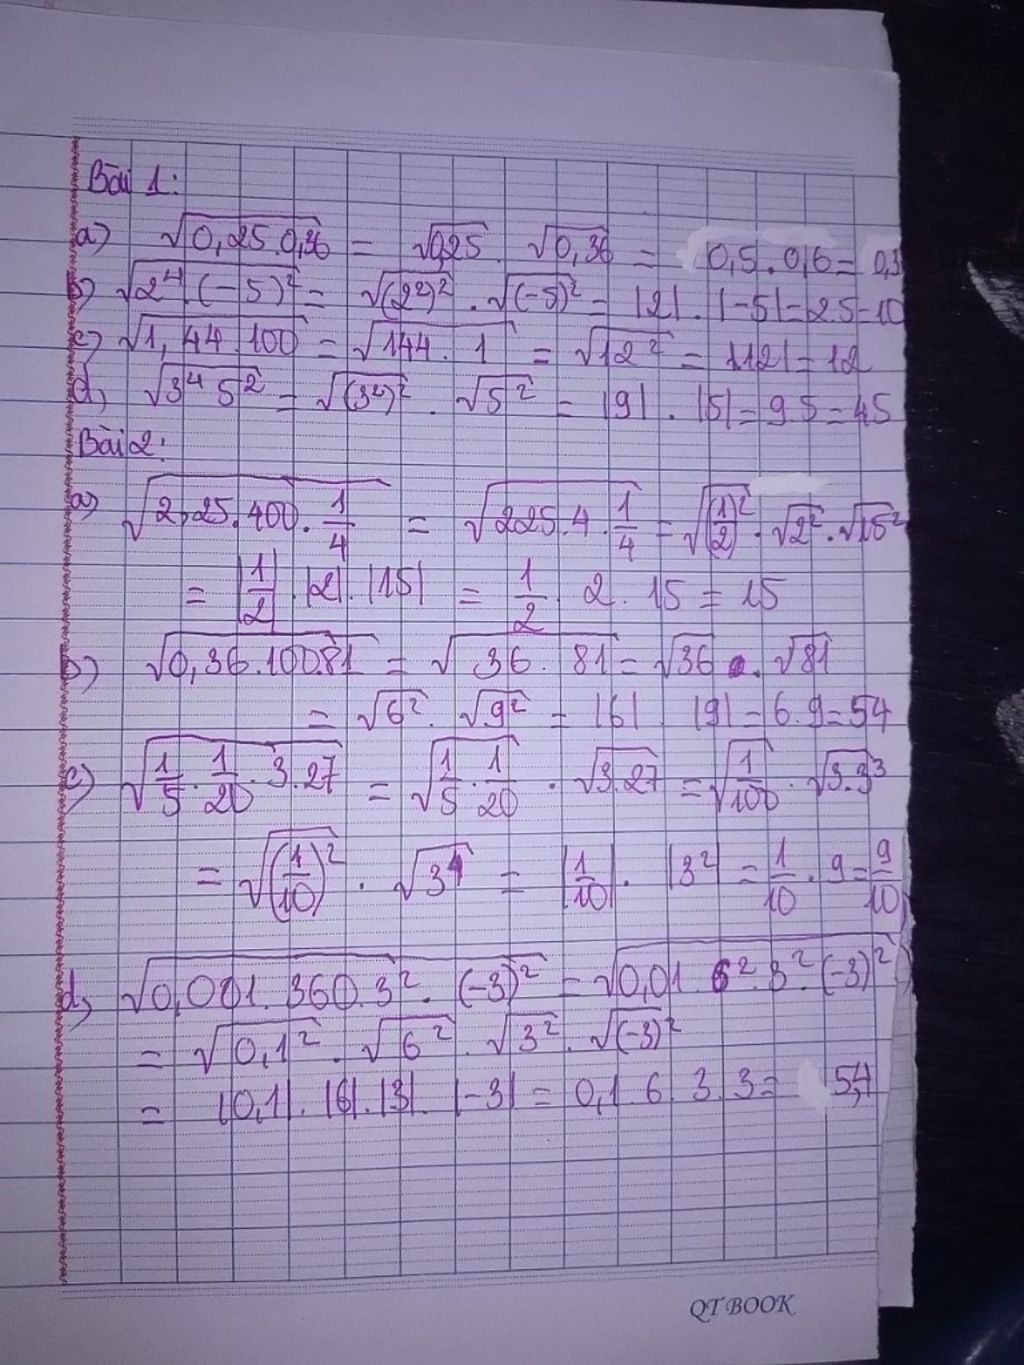 Bài 1:
a) √0,25.0,36 = √0,25 . √0,36 = 0,5.0,6 = 0,3
b) √2⁴.(-5)² = √(2²)² . √(-5)² = |2| . |-5| = 2.5 = 10
c) √1,44.100 = √144 . 1 = √12² = |12| = 12
d) √3⁴ 5² = √(3²)² . √5² = |9| . |5| = 9.5 = 45
Bài 2:
a) √2,25.400.1/4 = √225.4.1/4 = √(1/2)² . √2² . √15²
= |1/2| . |2| . |15| = 1/2 . 2 . 15 = 15
b) √0,36.100.81 = √36 . 81 = √36 . √81
= √6² . √9² = |6| |9| = 6.9 = 54
c) √1/5 . 1/20 . 3.27 = √1/5 . 1/20 . √3.27 = √1/100 . √3.3³
= √(1/10)² . √3⁴ = |1/10| . |3²| = 1/10 . 9 = 9/10
d) √0,001.360.3².(-3)² = √0,01.6².3².(-3)²
= √0,1² . √6² . √3² . √(-3)²
= |0,1| . |6| . |3| . |-3| = 0,1.6.3.3 = 5,4
QT BOOK